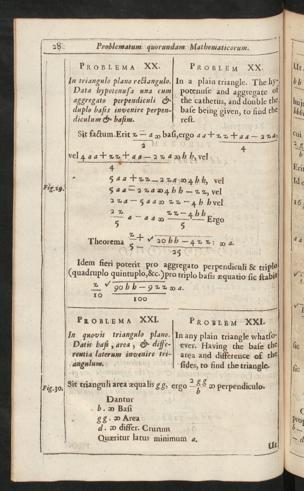 28. Problematum quorundam Mathematicorum.
PROBLEMA XX.
In triangulo plano rectangulo.
Data hypotenusa una cum
aggregato perpendiculi &
duplo basis invenire perpen-
diculum & basim.
PROBLEM XX.
In a plain triangle. The hy-
potenuse and aggregate of
the cathetus, and double the
base being given, to find the
rest.
Sit factum. Erit z — a/2 ∞ basi, ergo aa + zz + aa — 2za/4
vel 4aa + zz + aa — 2za/4 ∞ bb, vel
Fig. 29. 5aa + zz — 2za ∞ 4bb, vel
5aa — 2za ∞ 4bb — zz, vel
2za — 5aa ∞ zz — 4bb vel
2z/5 a — aa ∞ zz — 4bb/5 Ergo
Theorema z/5 ± √ 20bb — 4zz/25 : ∞ a.
Idem fieri poterit pro aggregato perpendiculi & triplo
(quadruplo quintuplo, &c.) pro triplo basis æquatio sic stabit
z/10 √ 90bb — 9zz/100 ∞ a.
PROBLEMA XXI.
In quovis triangulo plano.
Datis basi, area, & diffe-
rentia laterum invenire tri-
angulum.
PROBLEM XXI.
In any plain triangle whatso-
ever. Having the base the
area and difference of the
sides, to find the triangle.
Fig. 30. Sit trianguli area æqualis gg, ergo 2gg/b ∞ perpendiculo.
Dantur
b. ∞ Basi
gg. ∞ Area
d. ∞ differ. Crurum
Quæritur latus minimum a.
Ut.